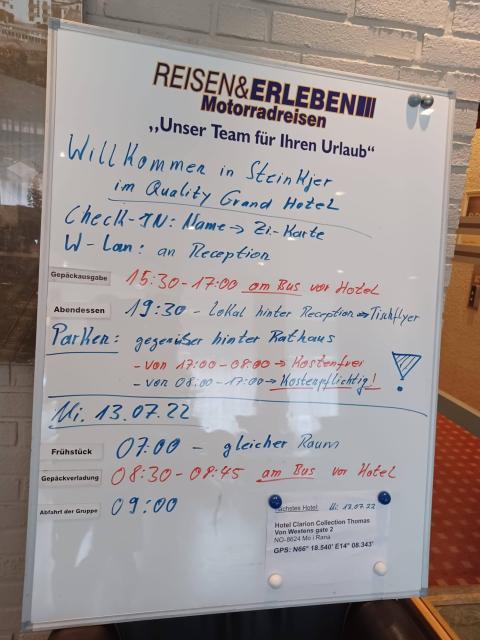 REISEN&ERLEBEN
Motorradreisen
„Unser Team für Ihren Urlaub“
Willkommen in Steinkjer
im Quality Grand Hotel
Check-IN: Name → Zi.-Karte
W-Lan: an Reception
Gepäckausgabe 15:30-17:00 am Bus vor Hotel
Abendessen 19:30 - Lokal hinter Reception → Tischflyer
Parken: gegenüber hinter Rathaus
- von 17:00-08:00 → Kostenfrei
- von 08:00-17:00 → Kostenpflichtig!
!
Mi. 13.07.22
Frühstück 07:00 - gleicher Raum
Gepäckverladung 08:30-08:45 am Bus vor Hotel
Abfahrt der Gruppe 09:00
Nächstes Hotel: Mi. 13.07.22
Hotel Clarion Collection Thomas
Von Westens gate 2
NO-8624 Mo i Rana
GPS: N66° 18.540' E14° 08.343'